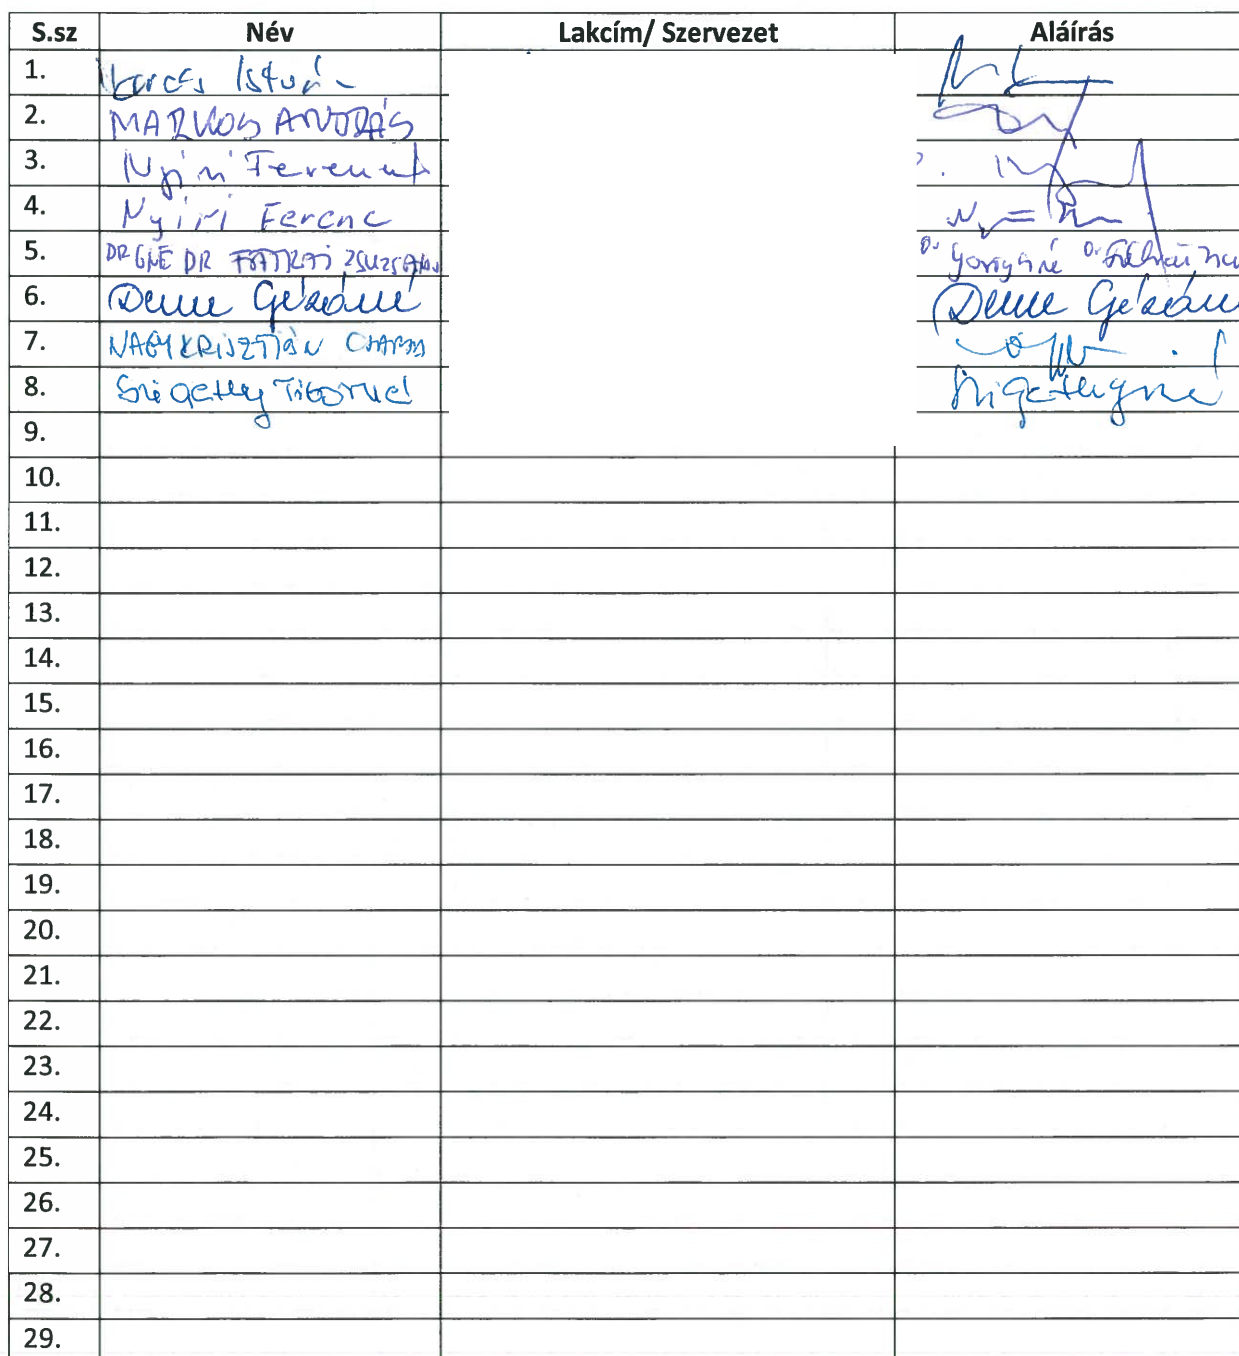 S.sz Név Lakcím/ Szervezet Aláírás
1. István
2. MARKOS ANDRÁS
3. Nyíri Ferenc
4. Nyíri Ferenc
5. DR GNÉ DR FÁTRAI ZSUZSANNA
6. Deme Gézáné Deme Gézáné
7. NAGY KRISZTIÁN CSABA
8. Szigethy Tiborné Szigethyné
9.
10.
11.
12.
13.
14.
15.
16.
17.
18.
19.
20.
21.
22.
23.
24.
25.
26.
27.
28.
29.